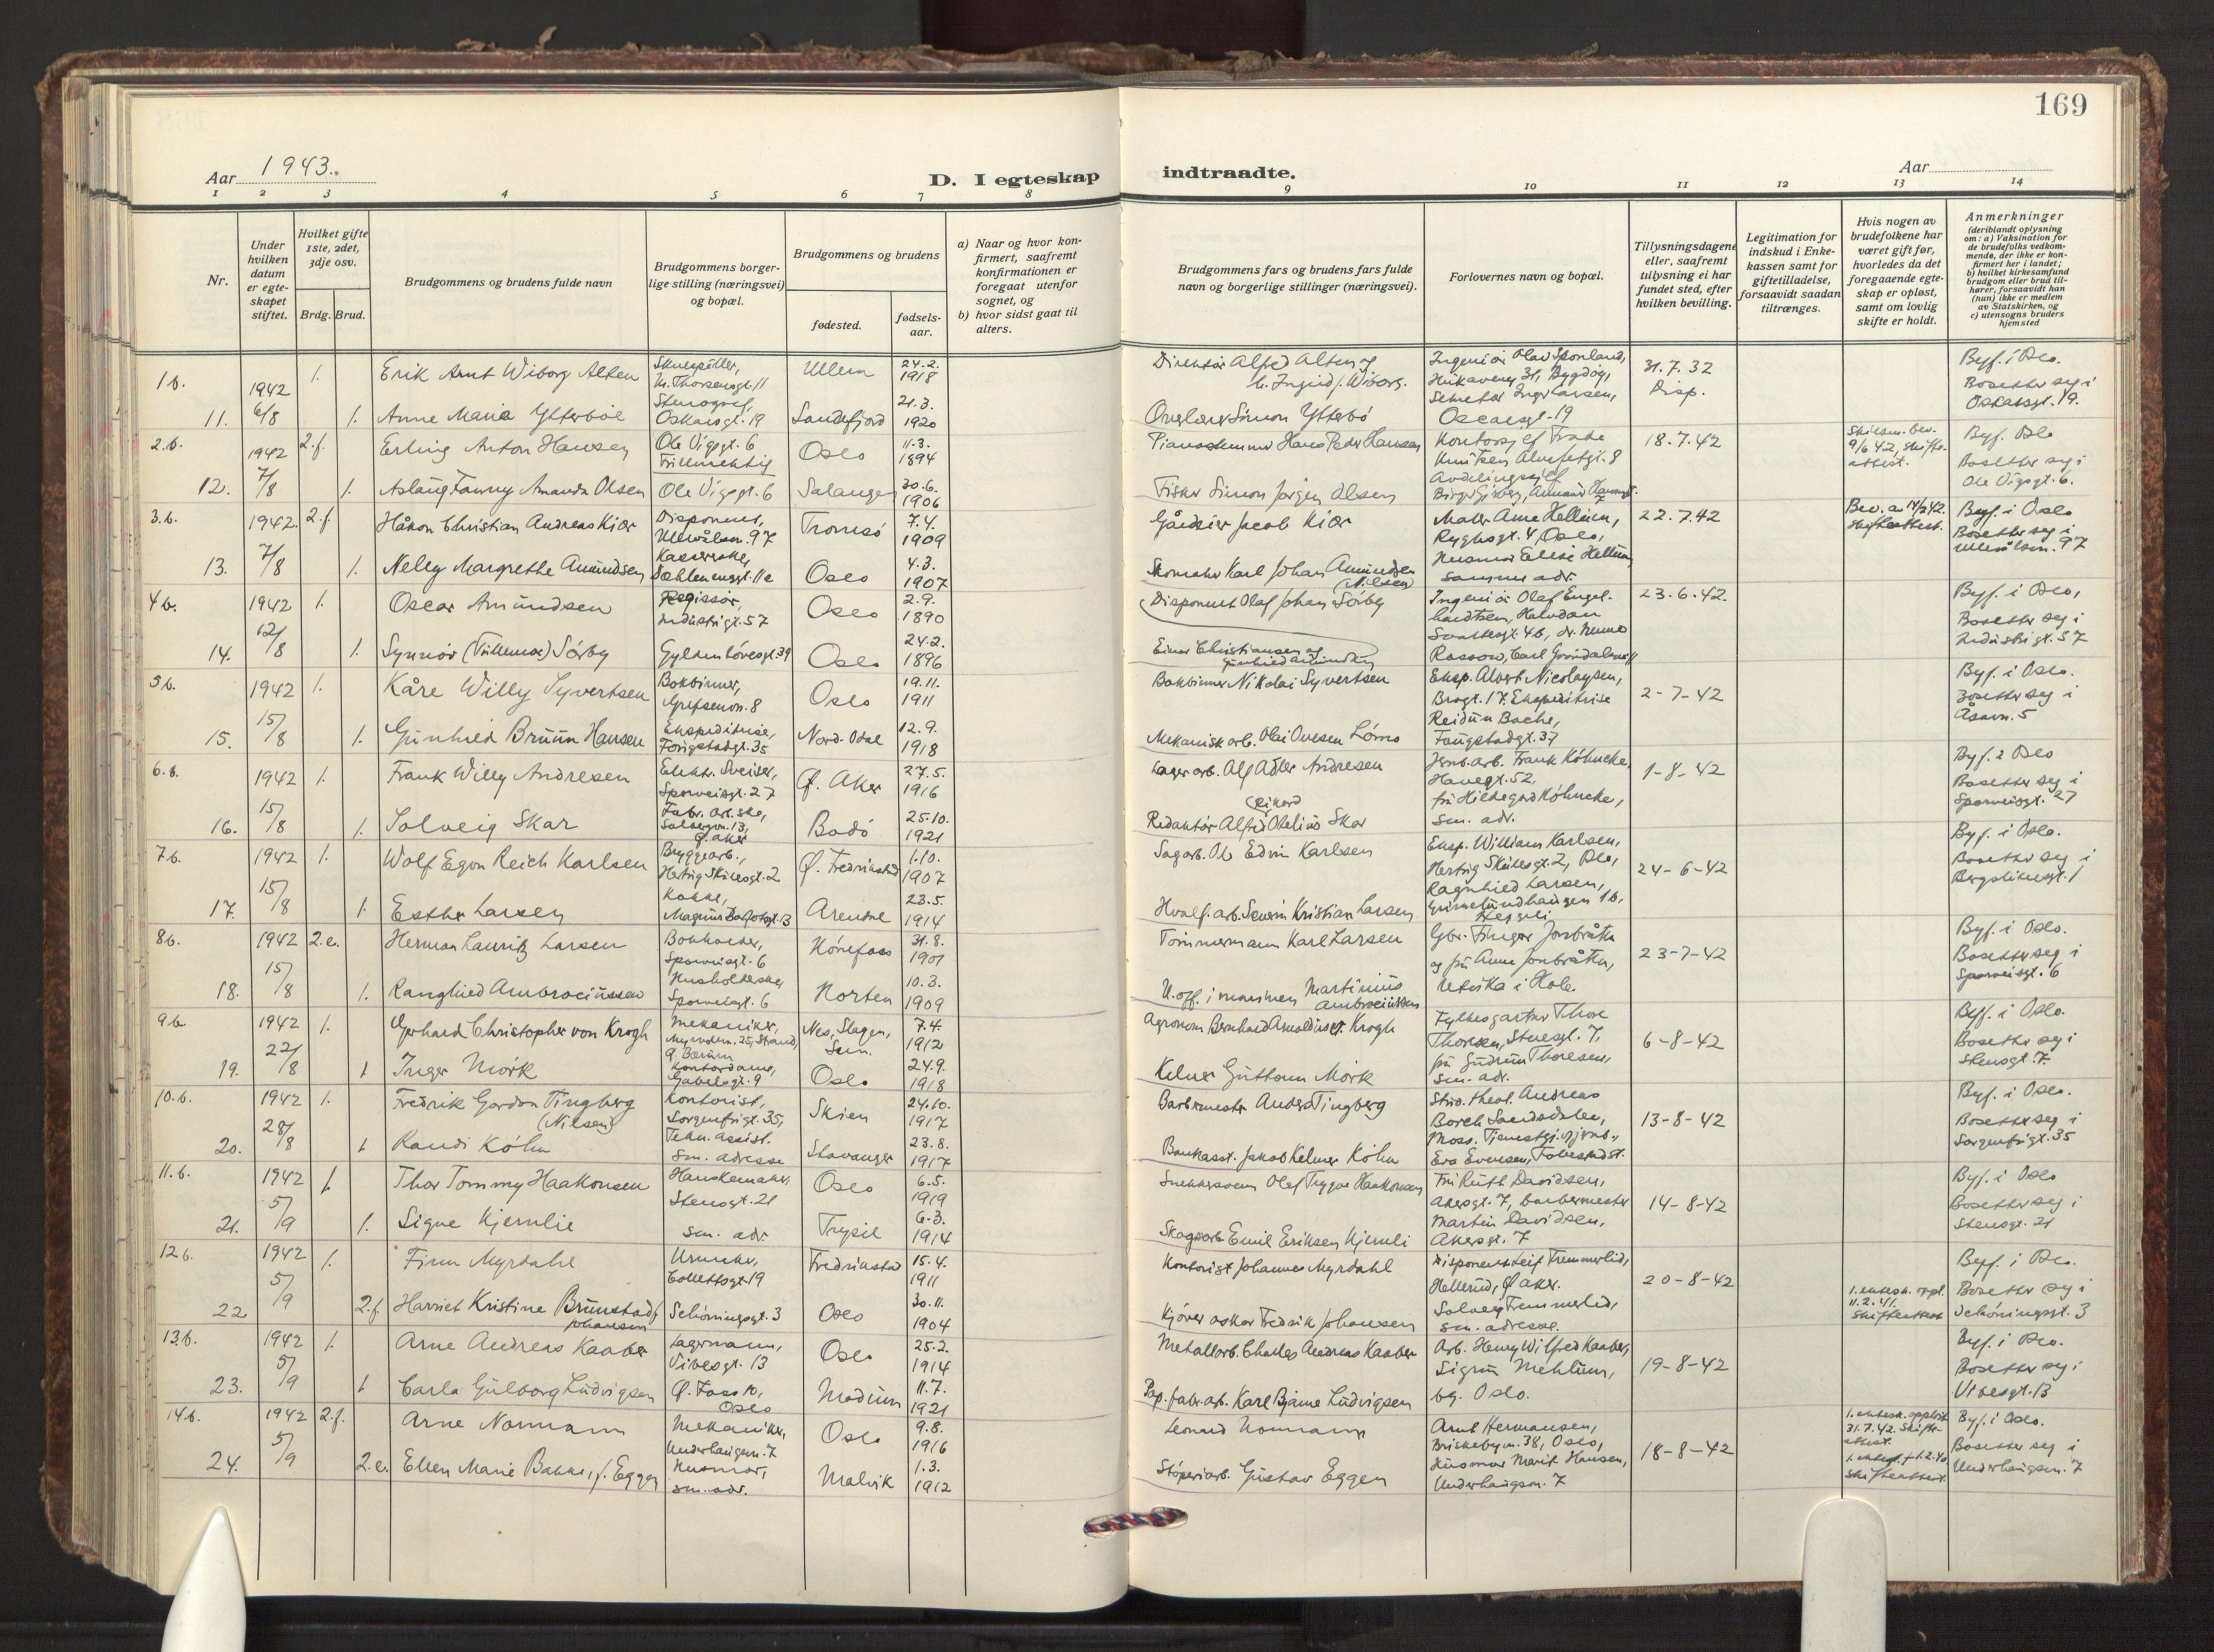 169
Aar 1943.
D. I egteskap indtraadte.
Aar
1 2 3 4 5 6 7 8 9 10 11 12 13 14
Nr.
Under hvilken datum er egte-skapet stiftet.
Hvilket gifte 1ste, 2det, 3dje osv.
Brdg. Brud.
Brudgommens og brudens fulde navn
Brudgommens borger-lige stilling (næringsvei) og bopæl.
Brudgommens og brudens
fødested.
fødsels-aar.
a) Naar og hvor kon-firmert, saafremt konfirmationen er foregaat utenfor sognet, og
b) hvor sidst gaat til alters.
Brudgommens fars og brudens fars fulde navn og borgerlige stillinger (næringsvei).
Forlovernes navn og bopæl.
Tillysningsdagene eller, saafremt tillysning ei har fundet sted, efter hvilken bevilling.
Legitimation for indskud i Enke-kassen samt for giftetilladelse, forsaavidt saadan tiltrænges.
Hvis nogen av brudefolkene har været gift før, hvorledes da det foregaaende egte-skap er opløst, samt om lovlig skifte er holdt.
Anmerkninger
(deriblandt oplysning om: a) Vaksination for de brudefolks vedkom-mende, der ikke er kon-firmert her i landet;
b) hvilket kirkesamfund brudgom eller brud til-hører, forsaavidt han (hun) ikke er medlem av Statskirken, og
c) utensogns bruders hjemsted
1b. 1942 1. Erik Arnt Wiborg Alten Skuespiller, Ullern 24.2. 1918 Direktør Alfred Alten og Ingeniør Olav 31.7.32 Disp. Byf. i Oslo.
11. 6/8 1. Anne Maria Ytterböe Oskarsgt. 19 Sandefjord 21.3. 1920 Simon Ytterbö Oscarsgt. 19 Bosetter seg i Oskarsgt. 19.
2.b. 1942 2.f. Erling Anton Hansen Ole Vigsgt. 6 Oslo 11.3. 1894 Pianostemmer Hans Peder Hansen Kontorsjef 18.7.42 Byf. Oslo
12. 7/8 1. Aslaug Fanny Amanda Olsen Ole Vigsgt. 6 Salangen 30.6. 1906 Fisker Simon Jørgen Olsen Bosetter seg i Ole Vigsgt. 6.
3.b. 1942 2.f. Håkon Christian Andreas Kiær Disponent, Ullevålsvn. 97 Tromsö 7.4. 1909 Gårdeier Jacob Kiær Maler Arne Hellum, 22.7.42 Byf. i Oslo
13. 7/8 1. Nelly Margrethe Amundsen Oslo 4.3. 1907 Skomaker Karl Johan Amundsen (Nilsen) samme adr. Bosetter seg i Ullevålsvn. 97
4b. 1942 1. Oscar Amundsen Regissör, Industrigt. 57 Oslo 2.9. 1890 Disponent Olaf Johan Sörby Ingeniör Olaf Engel- 23.6.42. Byf. i Oslo,
14. 12/8 1. Synnöv (Tullemor) Sörby Gyldenlövesgt. 39 Oslo 24.2. 1896 Einar Christiansen og Bosetter seg i Industrigt. 57
5b. 1942 1. Kåre Willy Syvertsen Bokbinner, Grefsenvn. 8 Oslo 19.11. 1911 Bokbinner Nikolai Syvertsen Eksp. Albert Nicolaysen, 2-7-42 Byf. i Oslo.
15. 15/8 1. Gunhild Bruun Hansen Ekspeditrise, Nord-Odal 12.9. 1918 Mekanisk arb. Olai Ovesen Lömo Reidun Bache, Bosetter seg i Åsavn. 5
6.b. 1942 1. Frank Willy Andresen Elektr. Sveiser, Sporveisgt. 27 Ø. Aker 27.5. 1916 Lagerarb. Alf Adler Andresen Jernb.arb. Frank Köhncke, 1-8-42 Byf. i Oslo
16. 15/8 1. Solveig Skar Bodö 25.10. 1921 Redaktör Alfred Obelius Skar fru Hildegard Köhncke, sm. adr. Bosetter seg i Sporveisgt. 27
7b. 1942 1. Wolf Egon Reich Karlsen Bryggearb., Hertug Skulesgt. 2 Ø. Fredrikstad 1.10. 1907 Sagarb. Ole Edvin Karlsen Eksp. William Karlsen, Hertug Skulesgt. 2, Oslo, 24-6-42 Byf. i Oslo.
17. 15/8 1. Esther Larsen Kokke, Arendal 23.5. 1914 Hvalf.arb. Severin Kristian Larsen Ragnhild Larsen, Bosetter seg i Bergsliensgt. 1
8b. 1942 2.e. Herman Lauritz Larsen Bokholder, Sporveisgt. 6 Hönefoss 31.8. 1901 Tömmermann Karl Larsen Gbr. 23-7-42 Byf. i Oslo.
18. 15/8 1. Ranghild Ambrociussen Husholderske, Sporveisgt. 6 Horten 10.3. 1909 U.off. i marinen Martinius Ambrociussen Utvika i Hole. Bosetter seg i Sporveisgt. 6
9b 1942 1. Gerhard Christopher von Krogh Mekaniker, Nes, Slagen, Sem. 7.4. 1912 Agronom Bernhard Arnoldus v. Krogh Fylkesgartner Thore Thoresen, Stensgt. 7, 6-8-42 Byf. i Oslo.
19. 22/8 1 Inger Mörk Kontordame, Gabelsgt. 9 Oslo 24.9. 1918 Kelner Guttorm Mörk fru Gudrun Thoresen, sm. adr. Bosetter seg i Stensgt. 7.
10.b. 1942 1. Fredrik Gordon Tingberg (Nilsen) Kontorist, Sorgenfrigt. 35, Skien 24.10. 1917 Barbermester Anders Tingberg Stud. theol. Andreas Borch Sandsdalen, 13-8-42 Byf. i Oslo.
20. 28/8 1 Randi Köhn Tekn. assist. sm. adresse Stavanger 23.8. 1917 Bankasst. Jakob Kelmer Köhn Eva Evensen, Bosetter seg i Sorgenfrigt. 35
11.b. 1942 1. Thor Tommy Haakonsen Hanskemaker, Stensgt. 21 Oslo 6.5. 1919 Snekkersvenn Olaf Trygve Haakonsen Fru Ruth Davidsen, Akersgt. 7, barbermester 14-8-42 Byf. i Oslo
21. 5/9 1. Signe Kjernlie sm. adr. Trysil 6.3. 1914 Skogsarb. Emil Eriksen Kjernli Martin Davidsen, Akersgt. 7 Bosetter seg i Stensgt. 21
12b. 1942 1. Finn Myrdahl Urmaker, Collettsgt. 19 Fredrikstad 15.4. 1911 Kontorist Johannes Myrdahl Disponent Leif Tremmerlid, Hellerud, Ø. Aker. 20-8-42 Byf. i Oslo.
22 5/9 2.f. Harriet Kristine Brunstad f. Johansen Schöningsgt. 3 Oslo 30.11. 1904 Kjörer Oskar Fredrik Johansen Solveig Tremmerlid, sm. adresse. 1. ektesk. oppl. 11.2.41. Skifteattest Bosetter seg i Schöningsgt. 3
13.b. 1942 1. Arne Andreas Kaaber Lagermann, Vibesgt. 13 Oslo 25.2. 1914 Metallarb. Charles Andreas Kaaber Arb. Henry Wilfred Kaaber, 19-8-42 Byf. i Oslo.
23. 5/9 1 Carla Gulborg Ludvigsen Ø. Foss 10, Oslo Modum 11.7. 1921 Pap.fabr.arb. Karl Bjarne Ludvigsen Sigrun Mehlum, bg. Oslo. Bosetter seg i Vibesgt. 13
14b. 1942 2.f. Arne Normann Mekaniker, Underhaugsvn. 7 Oslo 9.8. 1916 Leonard Normann Arnt Hermansen, Briskebyvn. 38, Oslo, 18-8-42 1. ektesk. opplöst 31.7.42. Skifte-attest. Byf. i Oslo.
24. 5/9 2.e. Ellen Marie Bakke, f. Eggen Husmor, sm. adr. Malvik 1.3. 1912 Stöperiarb. Gustav Eggen Husmor Marit Hansen, Underhaugsvn. 7 Skifteattest. Bosetter seg i Underhaugsvn. 7